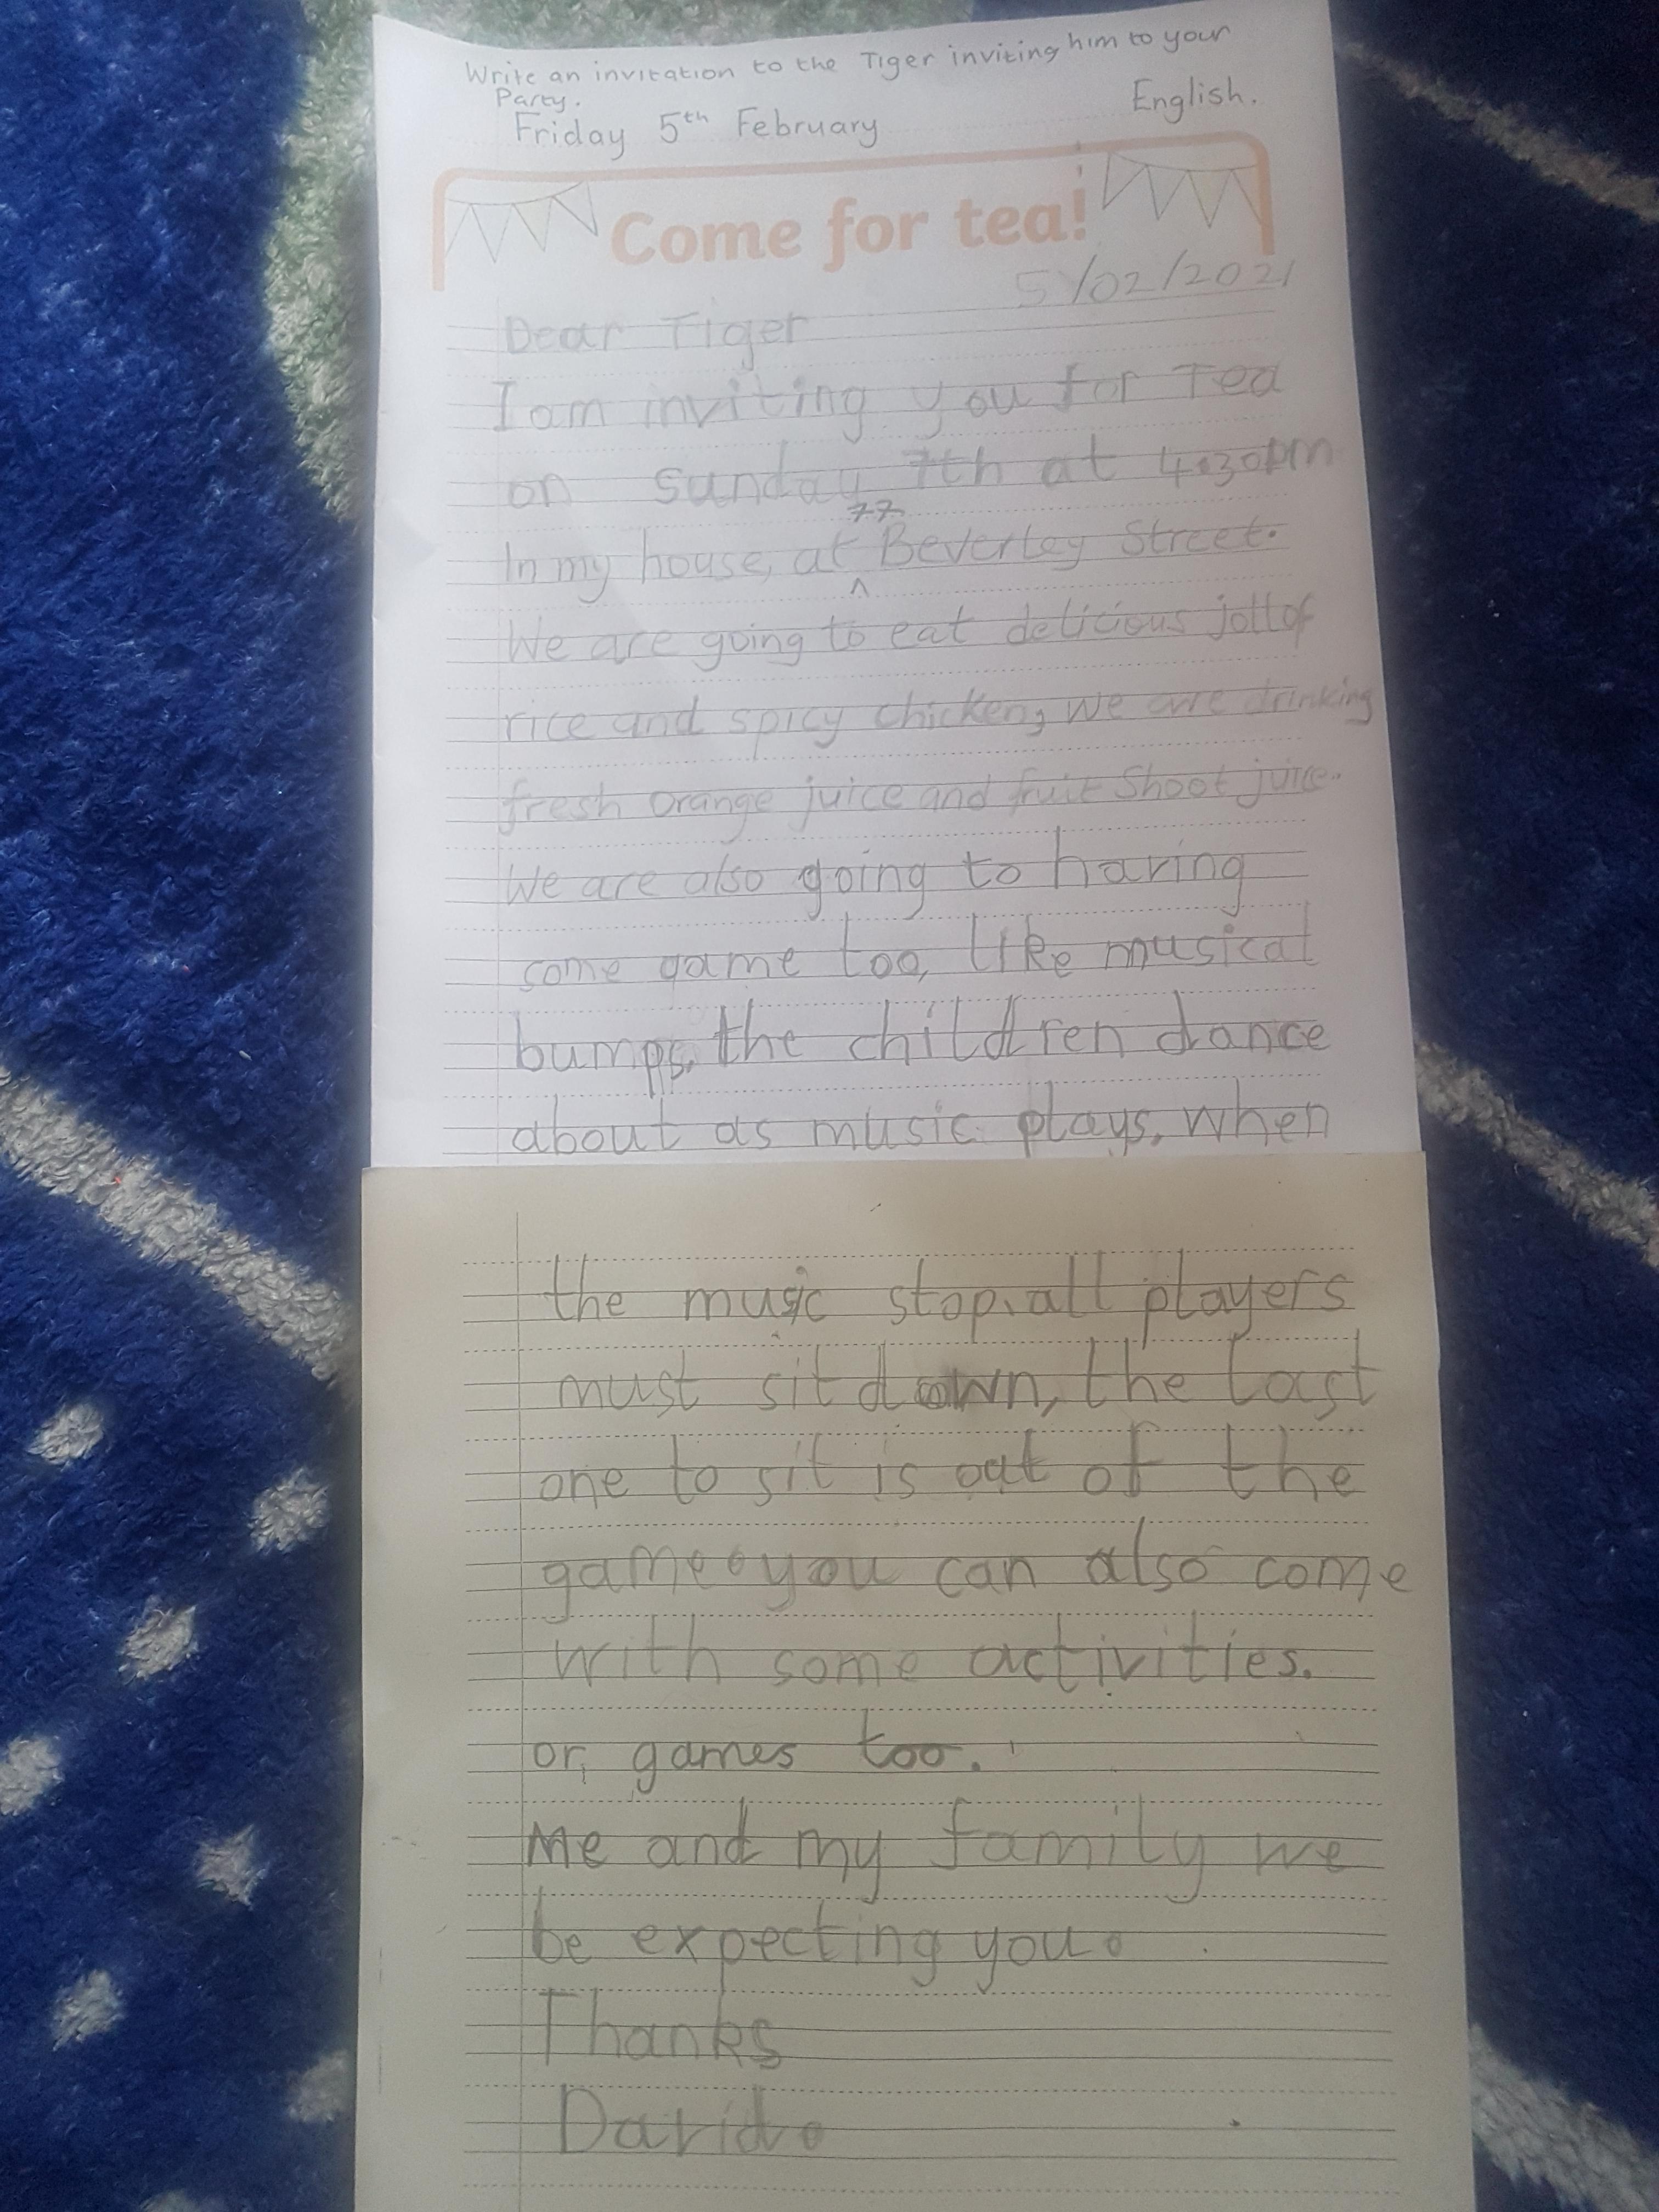 Write an invitation to the Tiger inviting him to your
Party.
English.
Friday 5th February
Come for tea!
5/02/2021
Dear Tiger
I am inviting you for Tea
on sunday 7th at 4.30pm
In my house, at 77 Beverley Street.
We are going to eat delicious jollof
rice and spicy chicken, we are drinking
fresh orange juice and fruit Shoot juice.
We are also going to having
some game too, like musical
bumps, the children dance
about as music plays, when
the music stop, all players
must sit down, the last
one to sit is out of the
game. you can also come
with some activities.
or, games too.
Me and my family we
be expecting you.
Thanks
David.